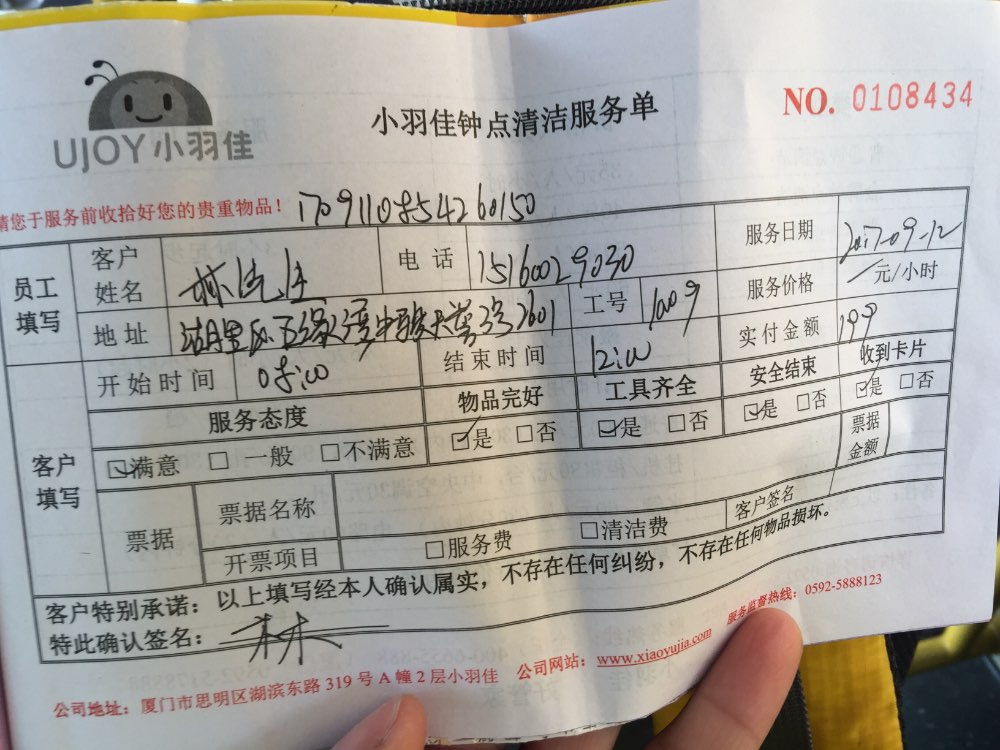 UJOY小羽佳
小羽佳钟点清洁服务单
NO. 0108434
请您于服务前收拾好您的贵重物品！ 1709110854260150
员工填写
客户姓名 林先生 电话 15160029030 服务日期 2017-09-12
地址 湖里区五缘湾 2601 工号 1009 服务价格 / 元/小时
实付金额 199
客户填写
开始时间 08:00 结束时间 12:00
服务态度 物品完好 工具齐全 安全结束 收到卡片
☑满意 □一般 □不满意 ☑是 □否 ☑是 □否 ☑是 □否 ☑是 □否
票据 票据名称 票据金额
开票项目 □服务费 □清洁费 客户签名
客户特别承诺：以上填写经本人确认属实，不存在任何纠纷，不存在任何物品损坏。
特此确认签名： 林
公司地址：厦门市思明区湖滨东路319号A幢2层小羽佳 公司网站：www.xiaoyujia.com 服务监督热线：0592-5888123